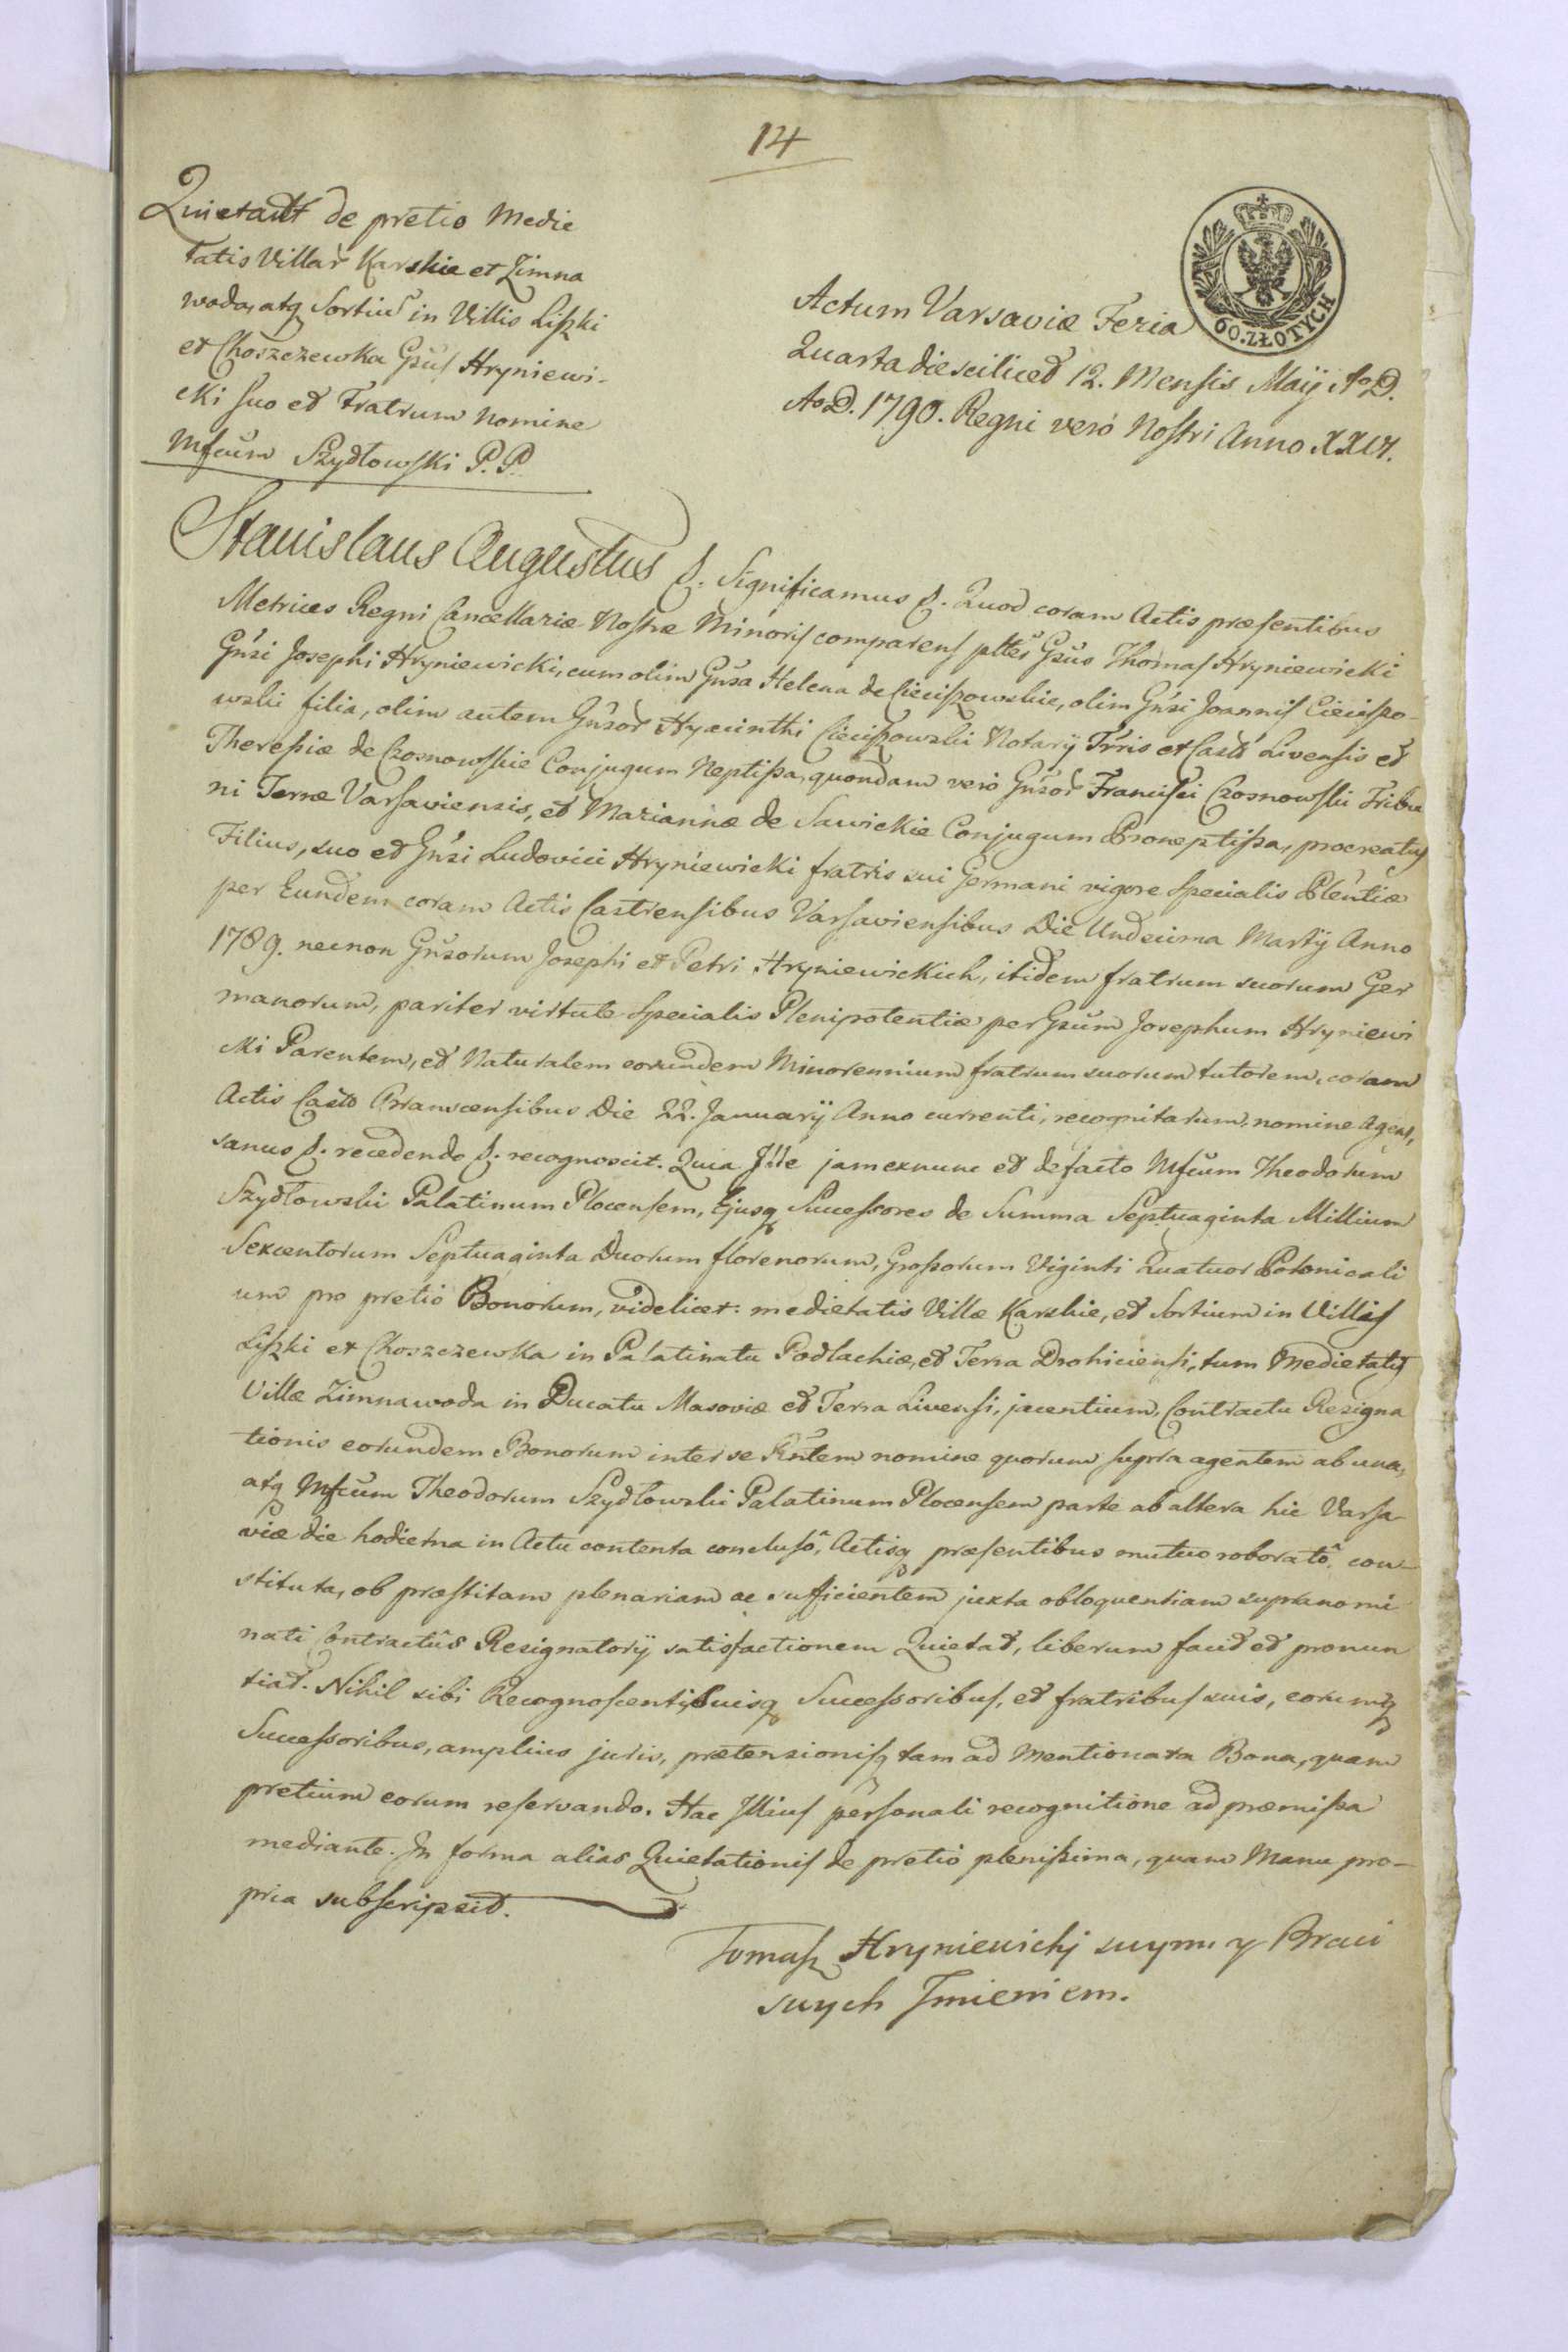 14
Quietatt de pretio Medie
tatis Villar̃ Karskie et Zimna
woda, atq Sortiũ in Villis Liszki
et Choszczewka Gsũs Hryniewi-
cki suo et Fratrum nomine
Mfcũm Szydłowski P. P.
60. ZŁOTYCH
Actum Varsaviæ Feria
Quarta die scilicet 12. Mensis Maÿ AoD.
AoD. 1790. Regni verò Nostri Anno XXVI.
Stanislaus Augustus &. Significamus &. Quod coram Actis præsentibus
Metrices Regni Cancellariæ Nostræ Minoris comparens pltẽr Gsũs Thomas Hryniewicki
Gñsi Josephi Hryniewicki, cum olim Gñsa Helena de Cieciszowskie, olim Gñsi Joannis Cieciszo-
wski filia, olim autem Gñsor̃ Hyacinthi Cieciszowski Notarÿ Tr̃ris et Castr̃ Livensis et
Theresiæ de Czosnowskie Conjugum Neptissa, quondam verò Gñsor̃ Francisci Czosnowski Tribu
ni Terræ Varsaviensis, et Mariannæ de Sawickie Conjugum Proneptissa, procreatus
Filius, suo et Gñsi Ludovici Hryniewicki fratris sui Germani vigore specialis Plẽntiæ
per Eundem coram Actis Castrensibus Varsaviensibus Die Undecima Martÿ Anno
1789. necnon Gñsorum Josephi et Petri Hryniewickich, itidem fratrum suorum Ger
manorum, pariter virtute specialis Plenipotentiæ per Gsũm Josephum Hryniewi
cki Parentem, et Naturalem eorundem Minorennium fratrum suorum tutorem, coram
Actis Castr̃ Bransensibus Die 22. Januarÿ Anno currenti, recognitarum, nomine Agens,
sanus &. recedendo &. recognoscit. Quia Ille jam exnunc et defacto Mfcũm Theodorum
Szydłowski Palatinum Plocensem, Ejusq Successores de Summa Septuaginta Millium
Sexcentorum Septuaginta Duorum florenorum, Grossorum Viginti Quatuor Polonicali
um pro pretio Bonorum, videlicet: medietatis Villæ Karskie, et Sortium in Villis
Liszki et Choszczewka in Palatinatu Podlachiæ, et Terra Drohiciensi, tum Medietatis
Villæ Zimnawoda in Ducatu Masoviæ et Terra Livensi, jacentium, Contractu Resigna
tionis eorundem Bonorum inter se Rñtem nomine quorum supra agentem ab una,
atq Mfcũm Theodorum Szydłowski Palatinum Plocensem parte ab altera hic Varsa-
viæ die hodierna in Actu contenta conclusô, Actisq præsentibus mutuo roboratô, con-
stituta, ob præstitam plenariam ac sufficientem juxta obloquentiam supranomi
nati Contractûs Resignatorÿ satisfactionem Quietat, liberum facit et pronun
tiat. Nihil sibi Recognoscenti, Suisq Successoribus, et fratribus suis, eorumq
Successoribus, amplius juris, prætensionisq tam ad Mentionata Bona, quam
pretium eorum reservando. Hac Illius personali recognitione ad præmissa
mediante. In forma alias Quietationis de pretio plenissima, quam Manu pro-
pria subscripsit.
Tomasz Hryniewicki swym y Braci
swych Imieniem.